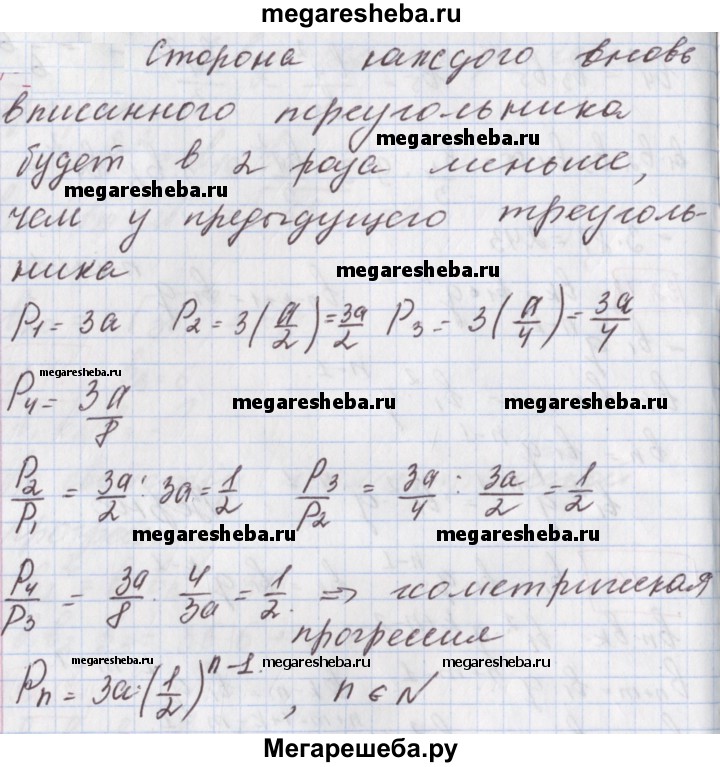 megaresheba.ru
Сторона каждого вновь
вписанного треугольника
megaresheba.ru
будет в 2 раза меньше,
megaresheba.ru
чем у предыдущего треуголь-
ника
megaresheba.ru
P₁ = 3a P₂ = 3(a/2) = 3a/2 P₃ = 3(a/4) = 3a/4
megaresheba.ru
P₄ = 3a/8
megaresheba.ru megaresheba.ru
P₂/P₁ = 3a/2 : 3a = 1/2 P₃/P₂ = 3a/4 : 3a/2 = 1/2
megaresheba.ru megaresheba.ru
P₄/P₃ = 3a/8 · 4/3a = 1/2. => геометрическая
megaresheba.ru
прогрессия
megaresheba.ru megaresheba.ru megaresheba.ru
Pₙ = 3a·(1/2)ⁿ⁻¹, n ∈ N
Мегарешеба.ру